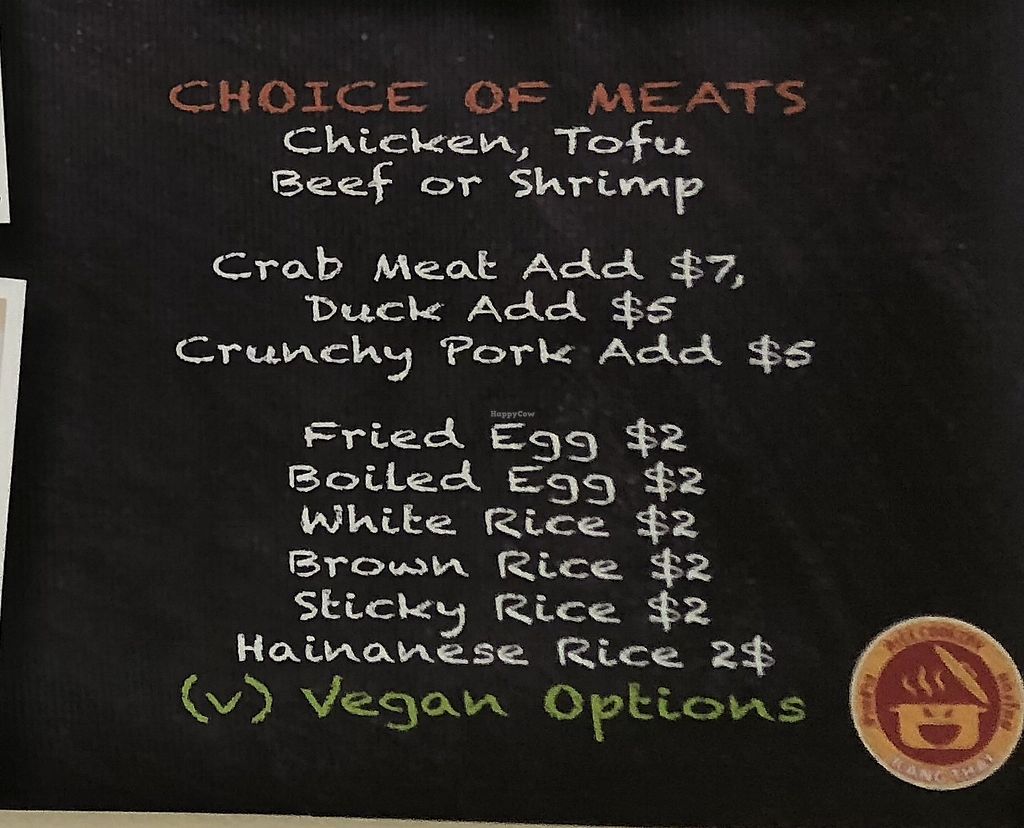 CHOICE OF MEATS
Chicken, Tofu
Beef or Shrimp
Crab Meat Add $7,
Duck Add $5
Crunchy Pork Add $5
HappyCow
Fried Egg $2
Boiled Egg $2
White Rice $2
Brown Rice $2
Sticky Rice $2
Hainanese Rice 2$
(v) Vegan Options
KANG THAI